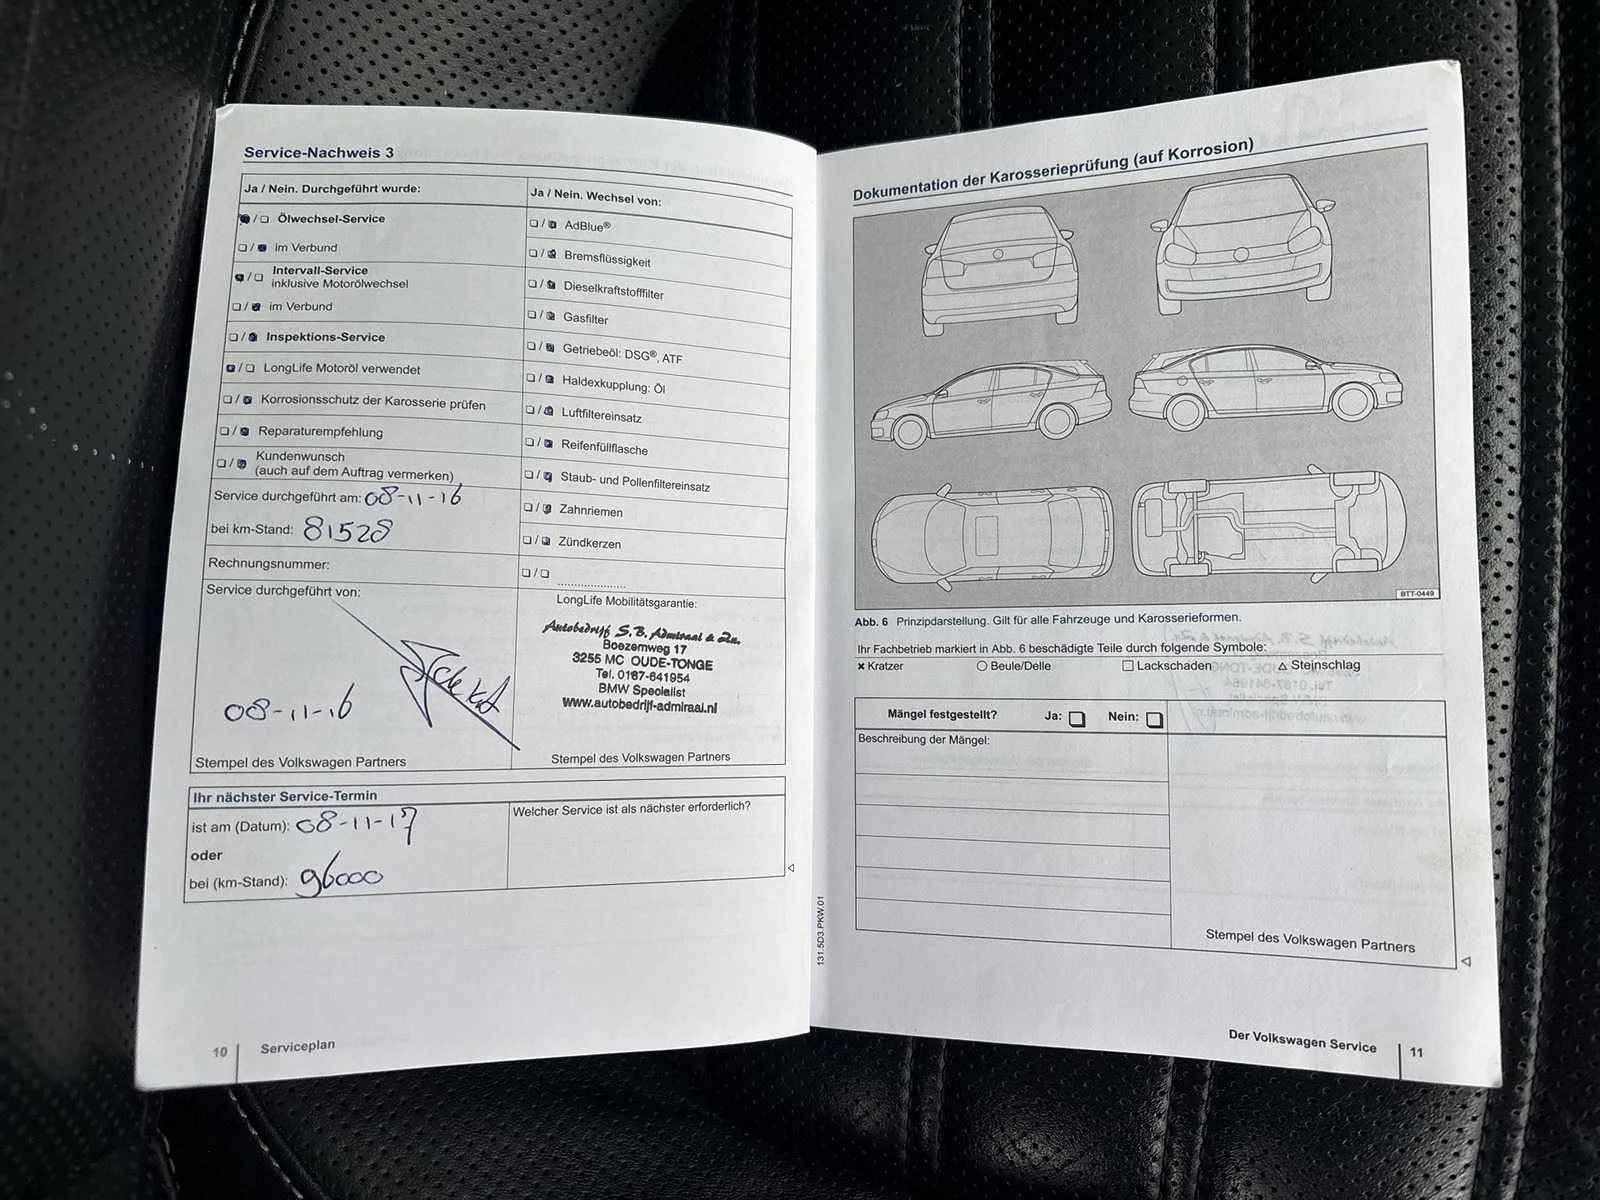 Service-Nachweis 3
Ja / Nein. Durchgeführt wurde:
/ Ölwechsel-Service
/ im Verbund
/ Intervall-Service
inklusive Motorölwechsel
/ im Verbund
/ Inspektions-Service
/ LongLife Motoröl verwendet
/ Korrosionsschutz der Karosserie prüfen
/ Reparaturempfehlung
/ Kundenwunsch
(auch auf dem Auftrag vermerken)
Service durchgeführt am: 08-11-16
bei km-Stand: 81528
Rechnungsnummer:
Service durchgeführt von:
08-11-16
Stempel des Volkswagen Partners
Ja / Nein. Wechsel von:
/ AdBlue®
/ Bremsflüssigkeit
/ Dieselkraftstofffilter
/ Gasfilter
/ Getriebeöl: DSG®, ATF
/ Haldexkupplung: Öl
/ Luftfiltereinsatz
/ Reifenfüllflasche
/ Staub- und Pollenfiltereinsatz
/ Zahnriemen
/ Zündkerzen
/ ....................
LongLife Mobilitätsgarantie:
Autobedrijf S.B. Admiraal & Zn.
Boezemweg 17
3255 MC OUDE-TONGE
Tel. 0187-641954
BMW Specialist
www.autobedrijf-admiraal.nl
Stempel des Volkswagen Partners
Ihr nächster Service-Termin
ist am (Datum): 08-11-17
oder
bei (km-Stand): 96000
Welcher Service ist als nächster erforderlich?
10 Serviceplan
131.5D3.PKW.01
Dokumentation der Karosserieprüfung (auf Korrosion)
BTT-0449
Abb. 6 Prinzipdarstellung. Gilt für alle Fahrzeuge und Karosserieformen.
Ihr Fachbetrieb markiert in Abb. 6 beschädigte Teile durch folgende Symbole:
× Kratzer ○ Beule/Delle □ Lackschaden △ Steinschlag
Mängel festgestellt? Ja: Nein:
Beschreibung der Mängel:
Stempel des Volkswagen Partners
Der Volkswagen Service 11